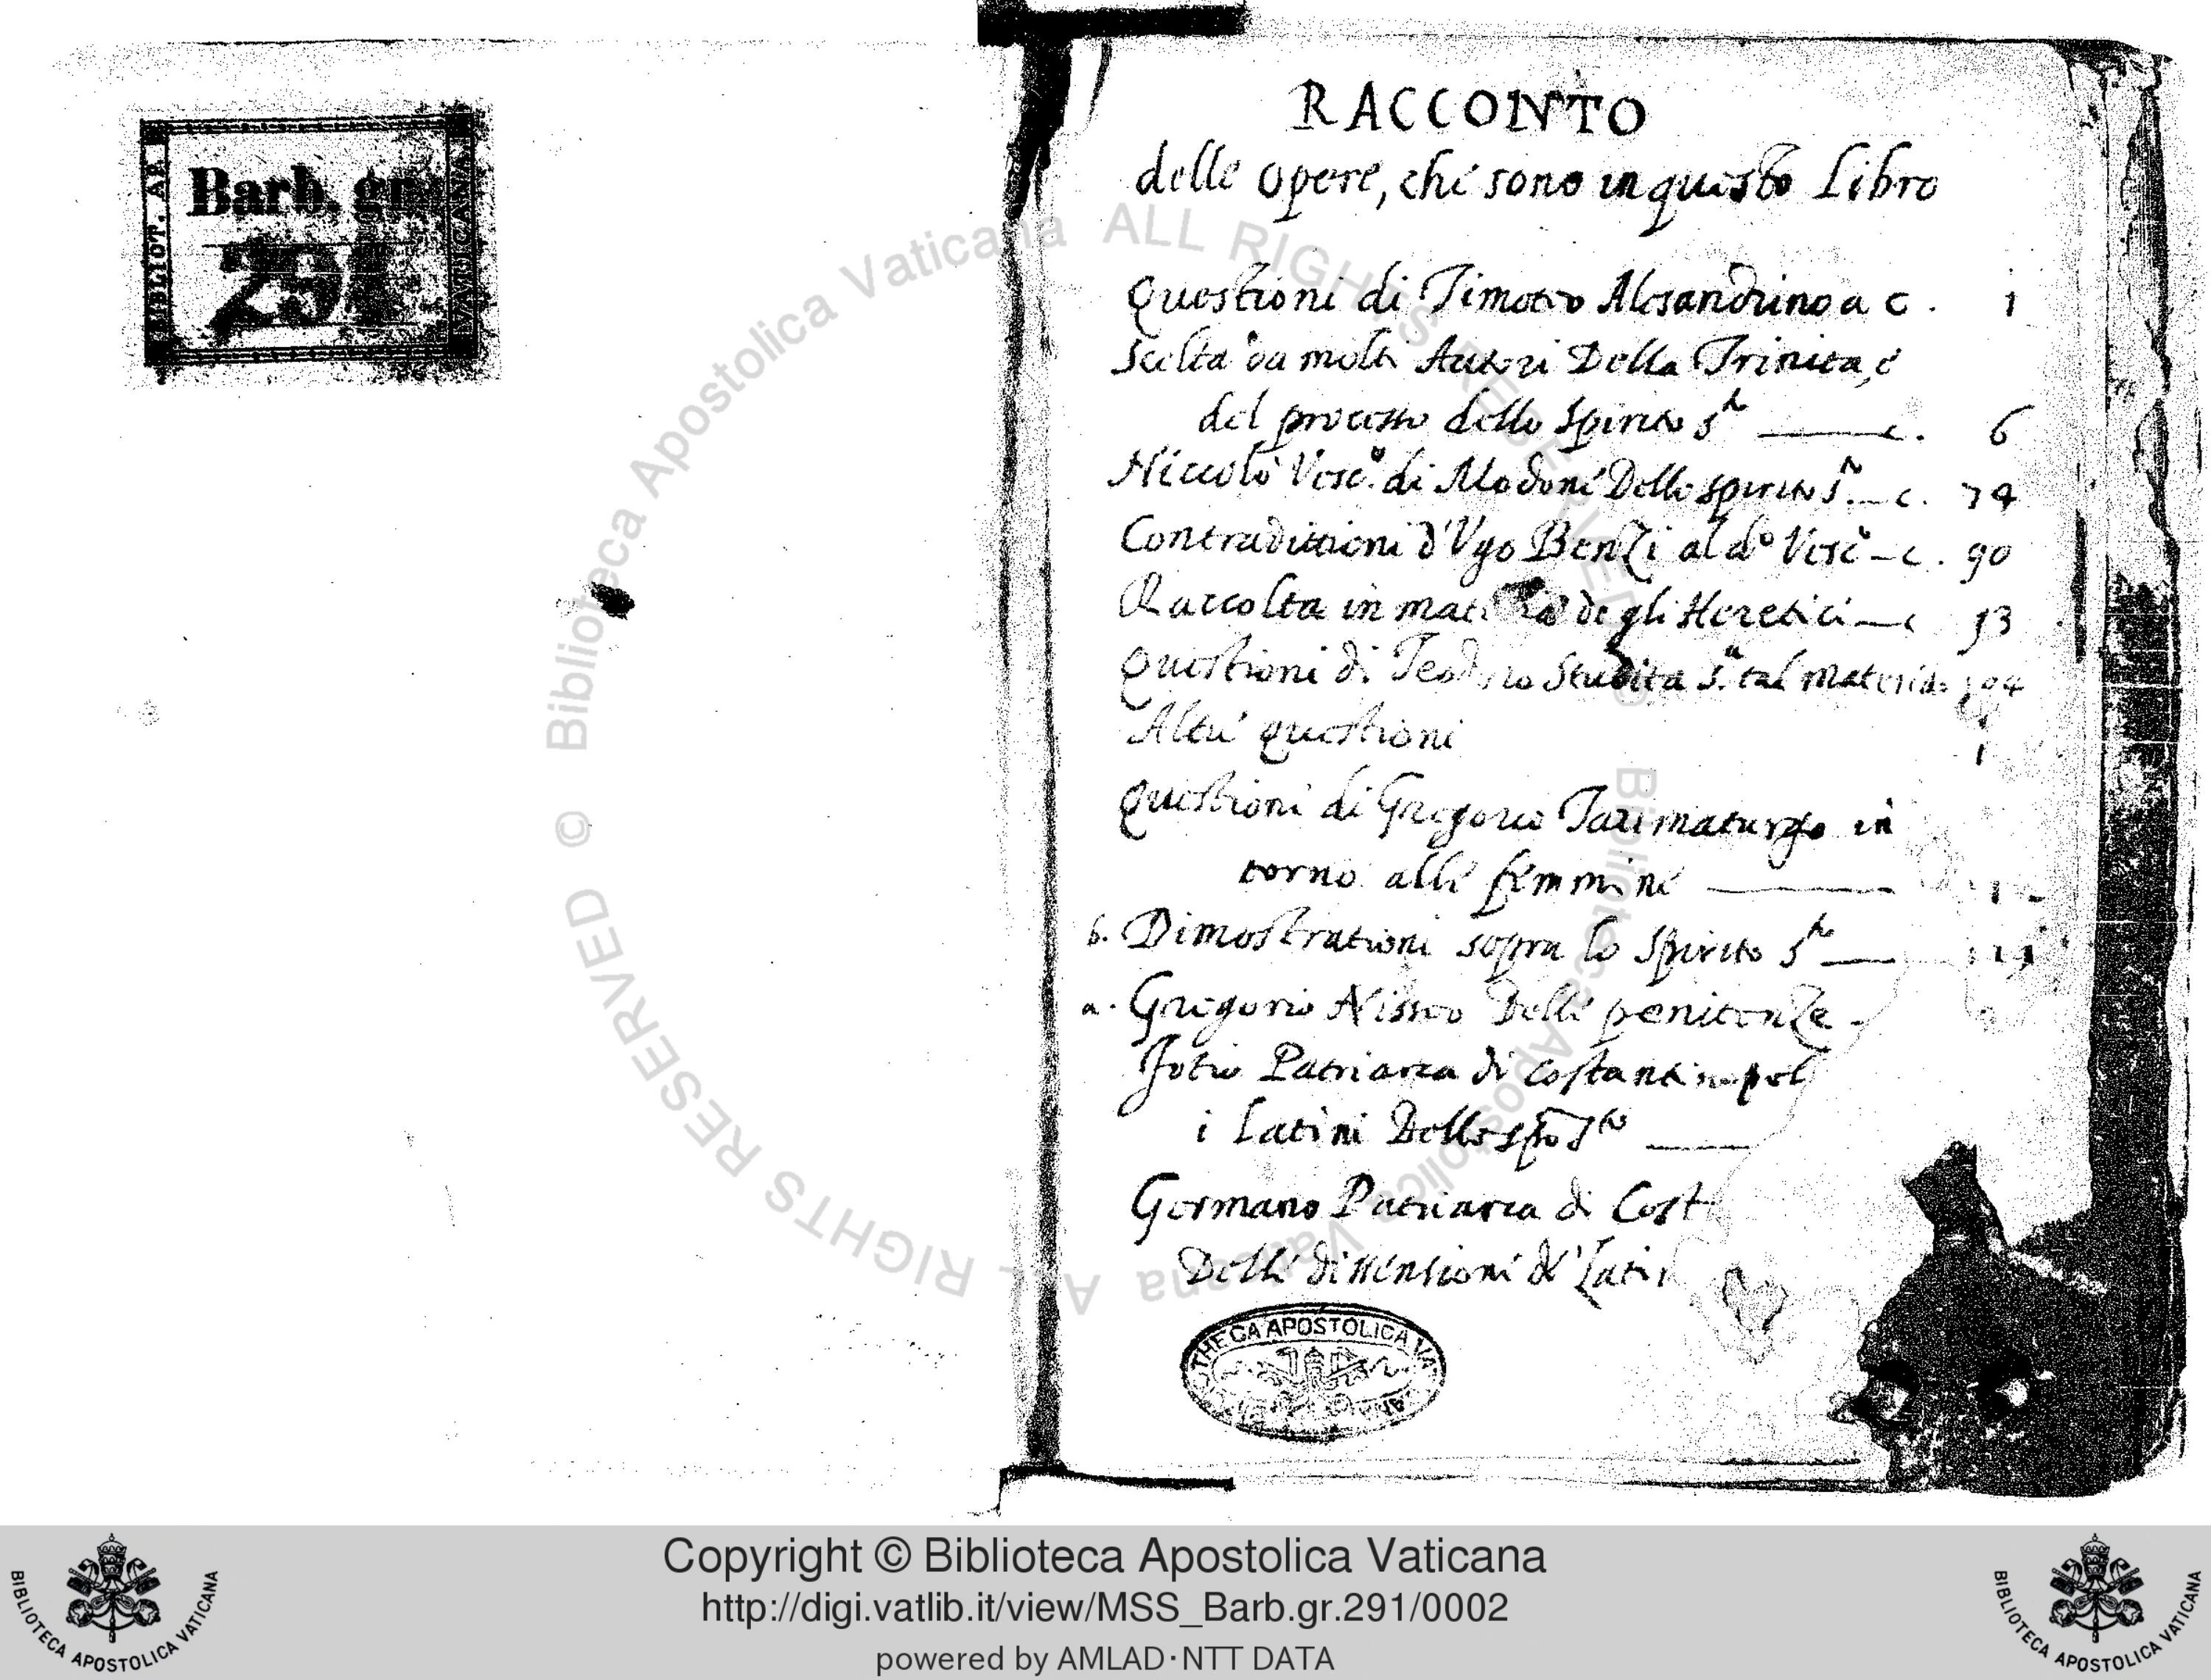 BIBLIOT. AP.
Barb. gr.
291
VATICANA
RACCONTO
delle opere, che sono in questo Libro
Questioni di Timoteo Alesandrino a c. 1
Scelta da molti Autori Della Trinita, e
del processo dello Spirito s.to c. 6
Niccolò Vesc.o di Modone Dello spirito S.to c. 74
Contradittioni d'Ugo Benzi al d.o Vesc.o c. 90
Raccolta in materia degli Heretici c 93
Questioni di Teodoro Studita s.a tal materia
Altre questioni
Questioni di Gregorio Taumaturgo in
torno alle femmine
b. Dimostrationi sopra lo Spirito s.to
a. Gregorio Nisseo Delle penitenze
Fotio Patriarca di Costantinopol
i Latini Dello spo S.to
Germano Patriarca di Cost
Delle dissensioni de' Latin
THECA APOSTOLICA VA
© Biblioteca Apostolica Vaticana ALL RIGHTS RESERVED
© Biblioteca Apostolica Vaticana ALL RIGHTS RESERVED
Copyright © Biblioteca Apostolica Vaticana
http://digi.vatlib.it/view/MSS_Barb.gr.291/0002
powered by AMLAD·NTT DATA
BIBLIOTECA APOSTOLICA VATICANA
BIBLIOTECA APOSTOLICA VATICANA